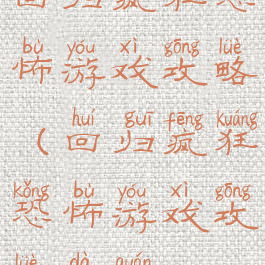 回归疯狂恐
bù yóu xì gōng lüè
怖游戏攻略
huí guī fēng kuáng
（回归疯狂
kǒng bù yóu xì gōng
恐怖游戏攻
lüè dà quán